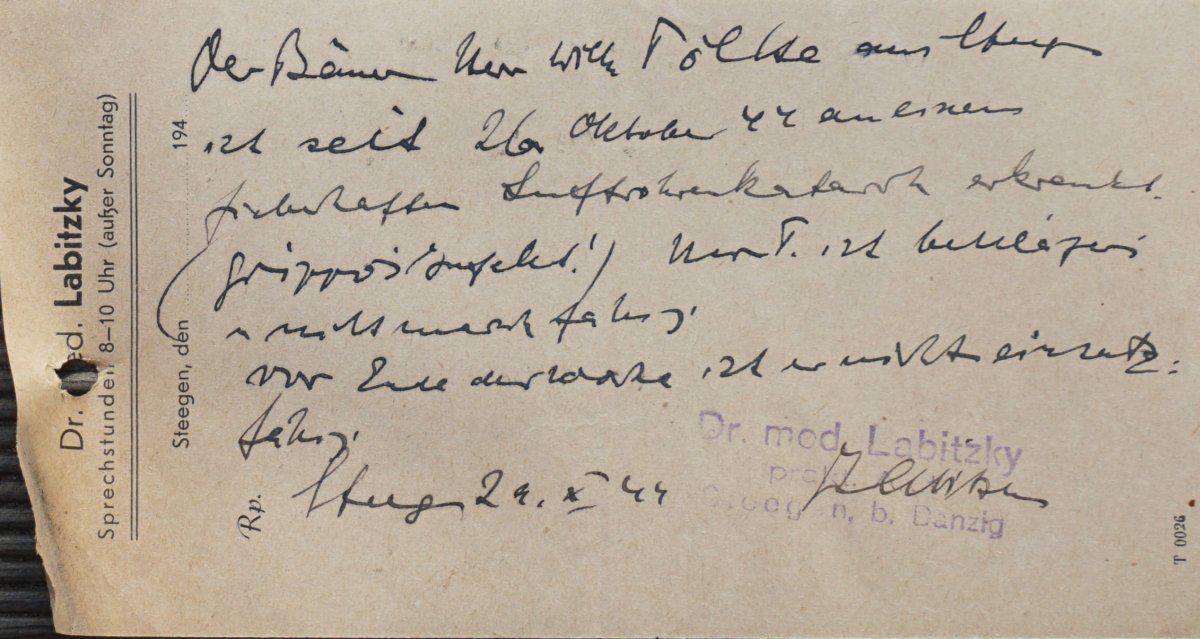 Dr. med. Labitzky
Sprechstunden 8–10 Uhr (außer Sonntag)
Steegen, den 194
Der Herr Willi Tölke aus Steegen
ist seit 26. Oktober 44 an einem
fieberhaften Luftröhrenkatarrh erkrankt.
(grippöser Infekt!) Herr T. ist bettlägerig
u nicht marschfähig.
Vor Ende der Woche ist er nicht einsatz-
fähig.
Rp.
Steegen 29. X 44
Dr. med. Labitzky
prakt.
Steegen, b. Danzig
T 0026